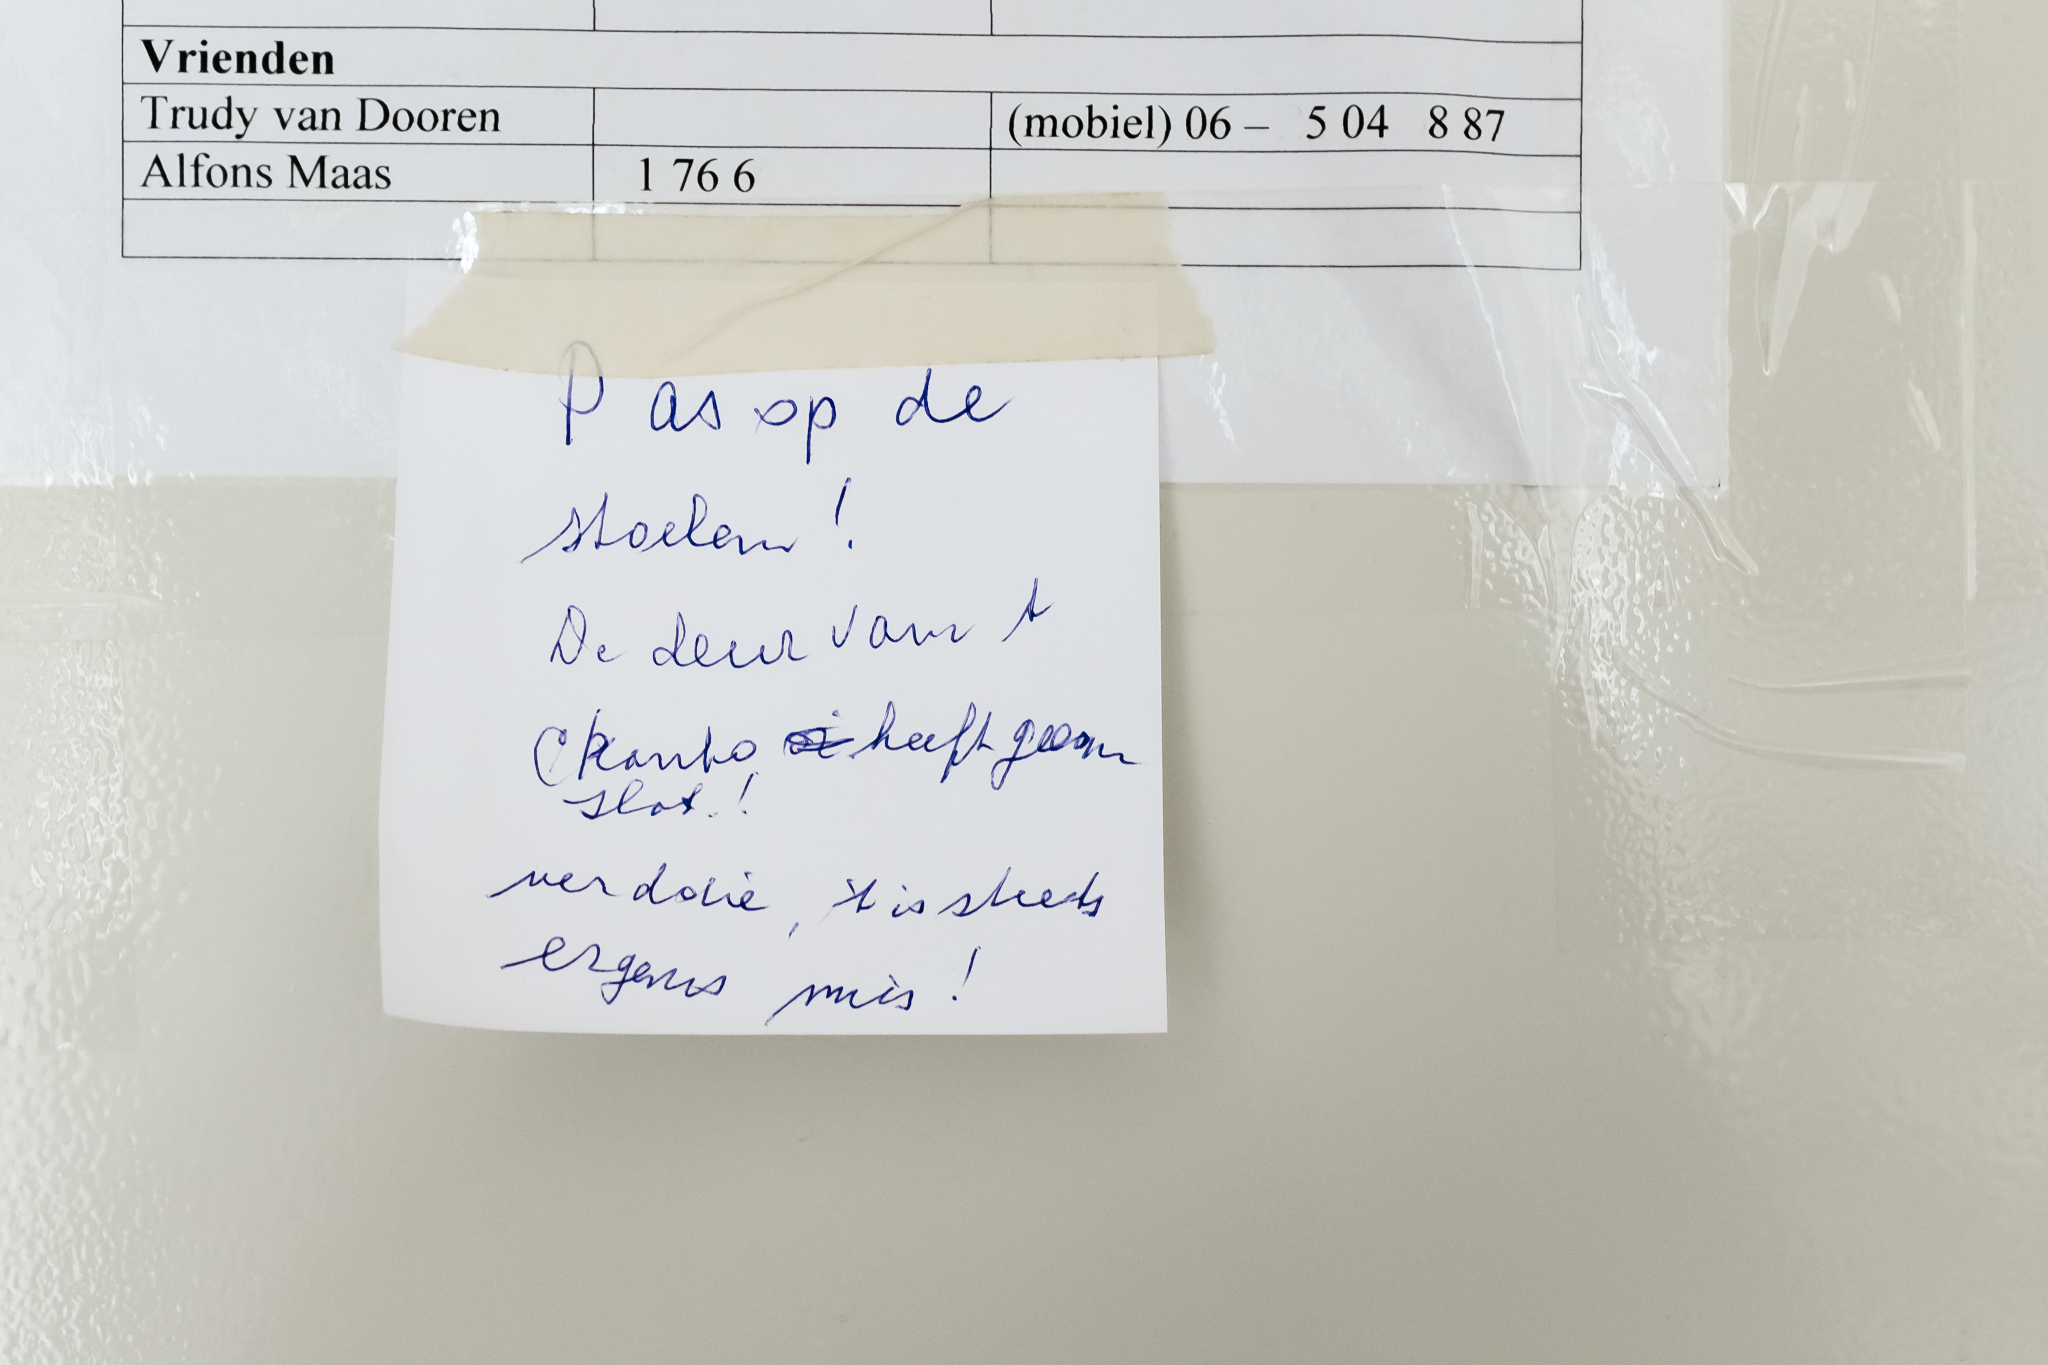 Vrienden
Trudy van Dooren (mobiel) 06 – 5 04 8 87
Alfons Maas 1 76 6
Pas op de
stoelen!
De deur van t
heeft geen
slot.!
verdorie, 't is steeds
ergens mis!